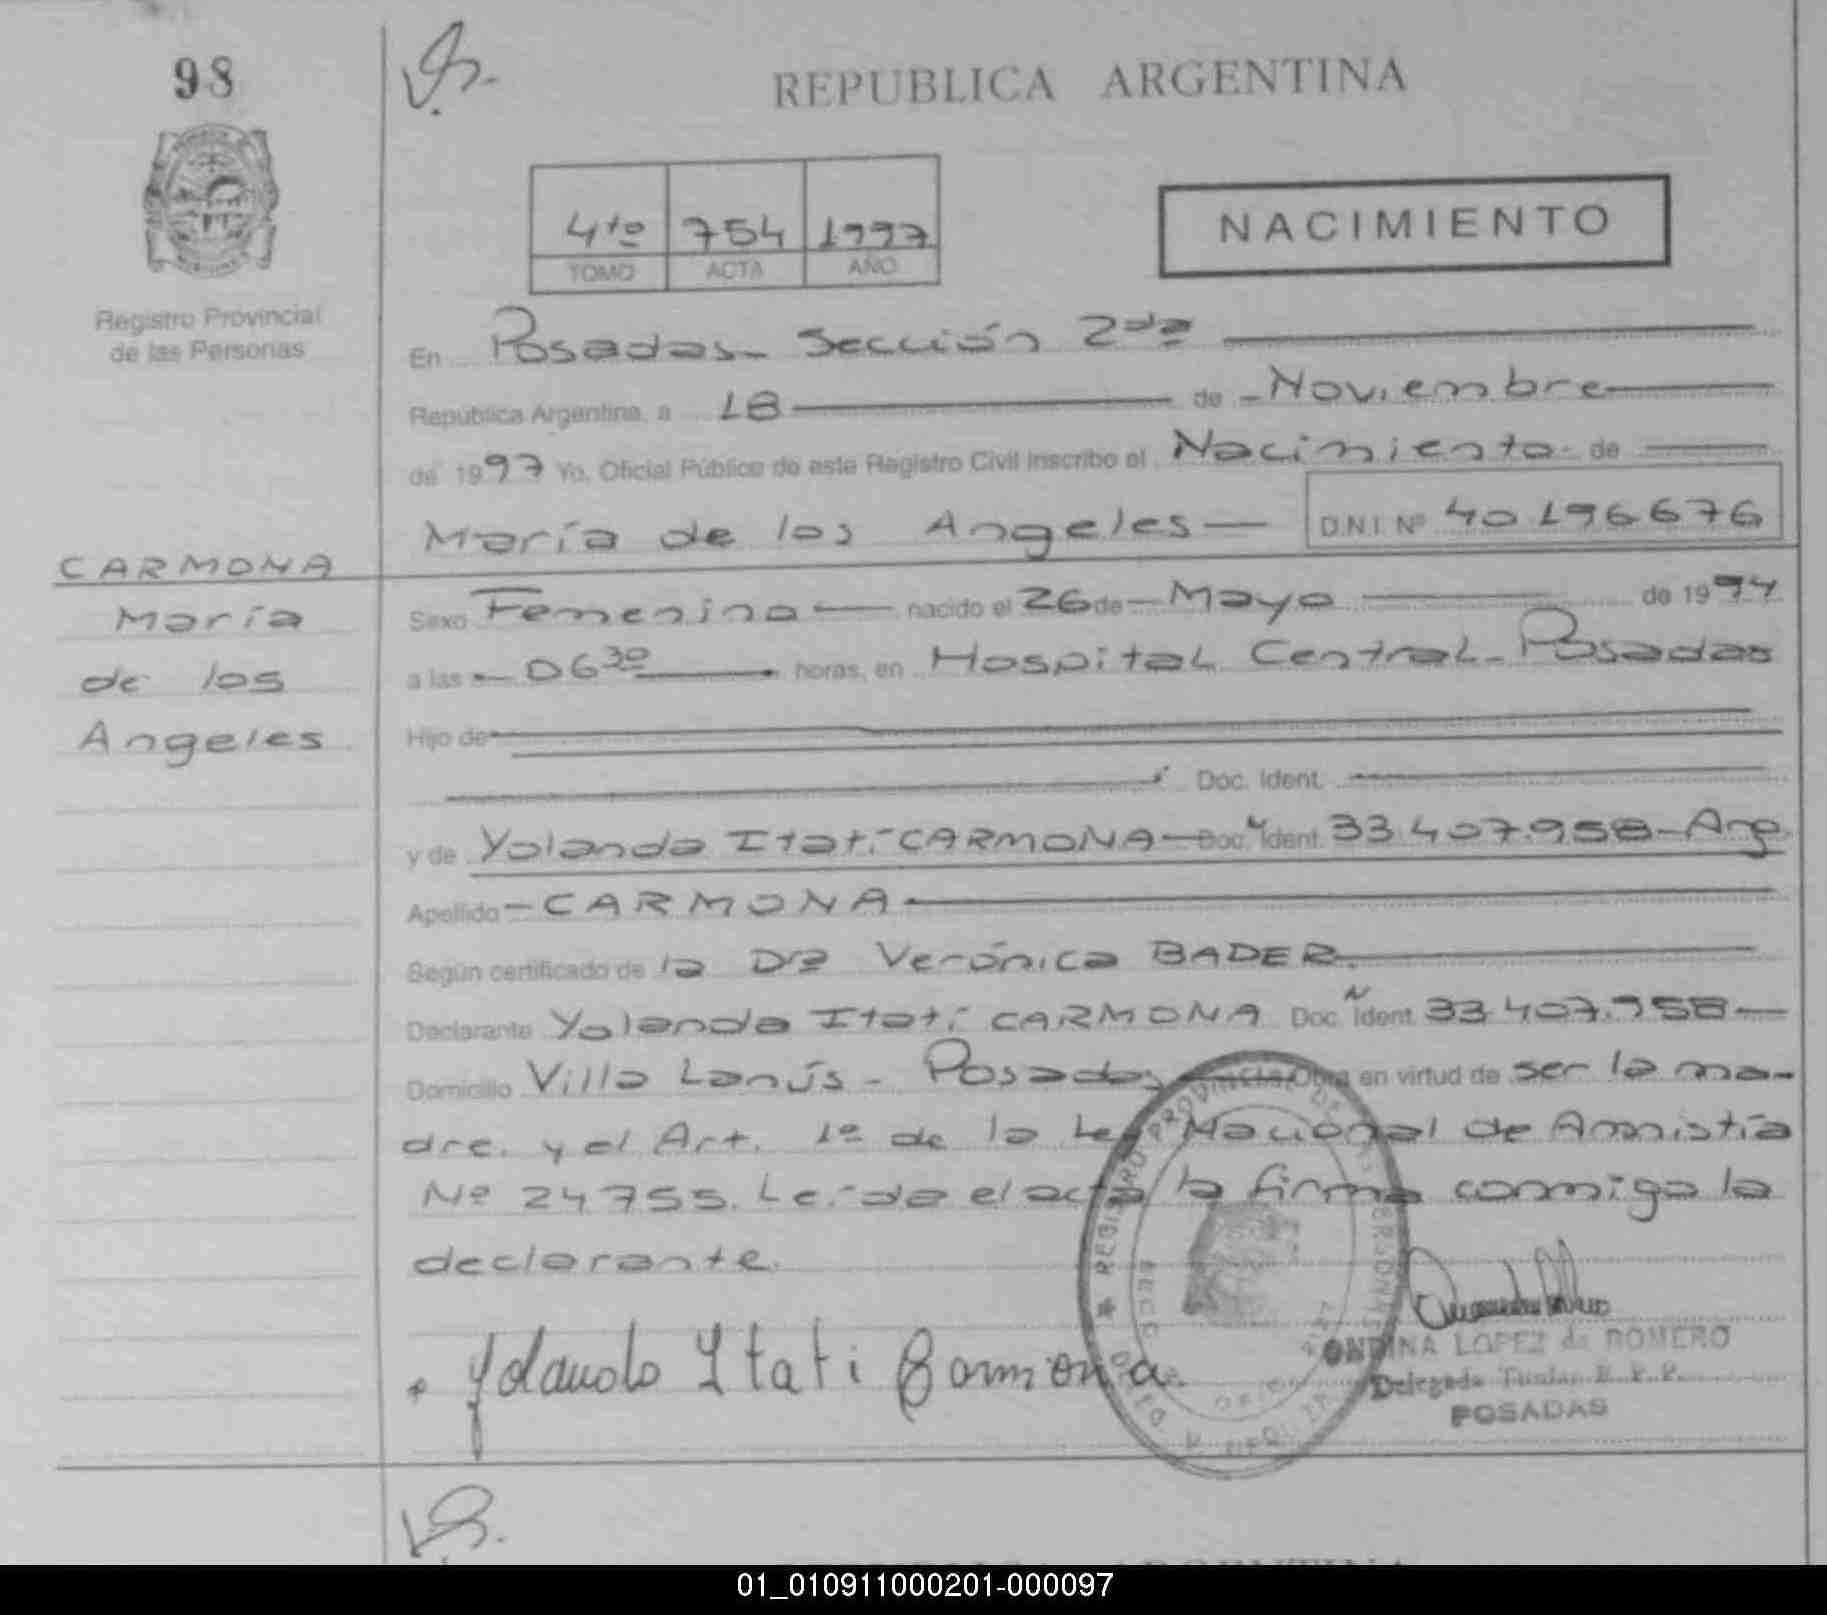 98
REPUBLICA ARGENTINA
4to 754 1997
TOMO ACTA AÑO
NACIMIENTO
Registro Provincial
de las Personas
En Posadas- Sección 2da
República Argentina, a 18 de Noviembre
de 1997 Yo, Oficial Público de este Registro Civil inscribo el Nacimiento de
María de los Angeles D.N.I. Nº 40196676
CARMONA
María
de los
Angeles
Sexo Femenino nacido el 26 de Mayo de 1994
a las 06 30 horas, en Hospital Central- Posadas
Hijo de
Doc. Ident.
y de Yolanda Itatí CARMONA Doc. Ident. 33.407.958- Arg.
Apellido CARMONA
Según certificado de la Dra Verónica BADER.
Declarante Yolanda Itatí CARMONA Doc. N Ident. 33.407.958
Domicilio Villa Lanús - Posadas Obra en virtud de ser la ma-
dre. y el Art. 1º de la Ley Nacional de Amnistía
Nº 24755. Leída el acta la firma conmigo la
declarante.
Yolanda Itati Carmona.
ONDINA LOPEZ de ROMERO
Delegada Titular R. P. P.
POSADAS
REPUBLICA ARGENTINA
01_010911000201-000097